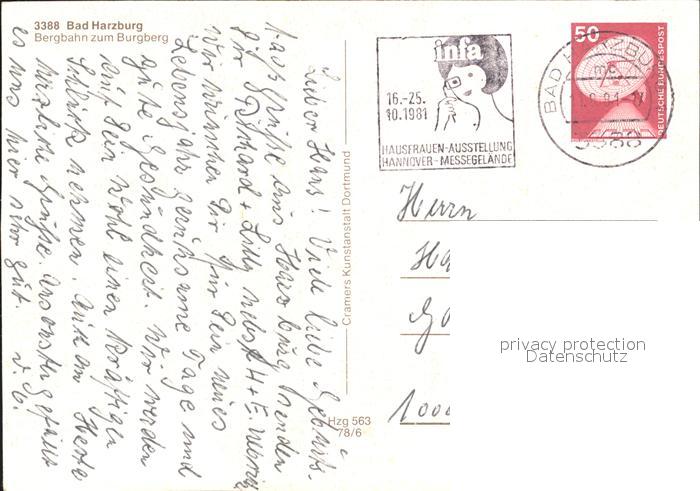 3388 Bad Harzburg
Bergbahn zum Burgberg
Lieber Hans! Viele liebe Geburts-
tags grüße aus Harzburg senden
dir Lilly nebst H + E
Wir wünschen dir für dein neues
Lebensjahr geruhsame Tage und
gute Gesundheit. Wir werden
auf dein Wohl einen kräftigen
Schluck nehmen. Auch an
herzliche Grüße. Ansonsten gefällt
es uns hier sehr gut. d. O.
Cramers Kunstanstalt Dortmund
Hzg 563
78/6
infa
16.-25.
10.1981
HAUSFRAUEN-AUSSTELLUNG
HANNOVER-MESSEGELÄNDE
BAD HARZBU
3388
50
DEUTSCHE BUNDESPOST
Herrn
1000
privacy protection
Datenschutz